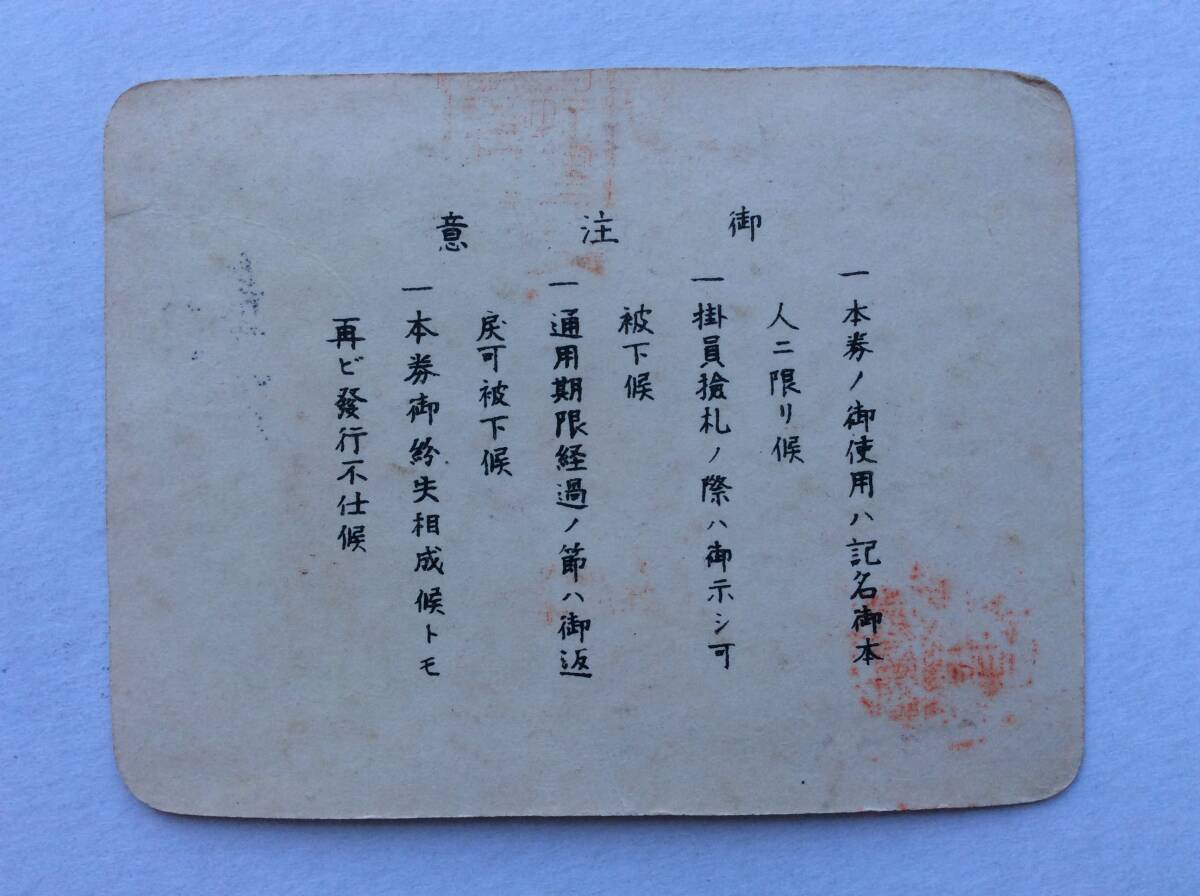 御注意
一本券ノ御使用ハ記名御本
人ニ限リ候
一掛員撿札ノ際ハ御示シ可
被下候
一通用期限経過ノ節ハ御返
戻可被下候
一本券御紛失相成候トモ
再ビ發行不仕候